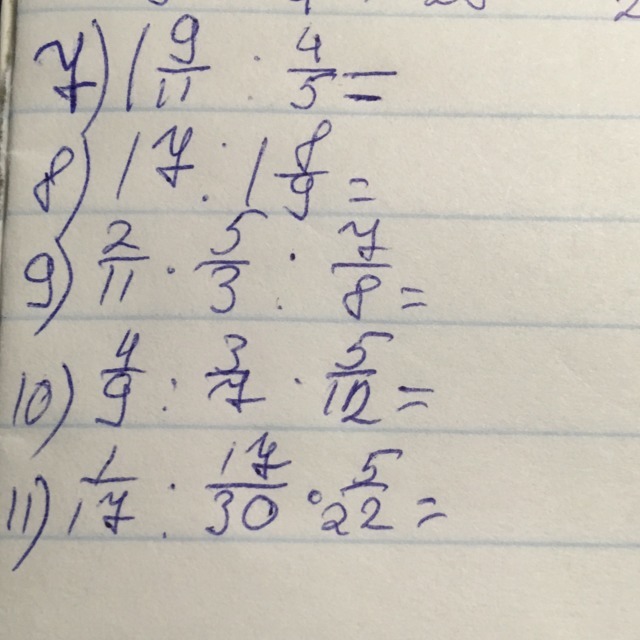 7) 1 9/11 : 4/5 =
8) 17 : 1 8/9 =
9) 2/11 · 5/3 : 7/8 =
10) 4/9 : 3/7 · 5/12 =
11) 1/17 : 17/30 · 5/22 =